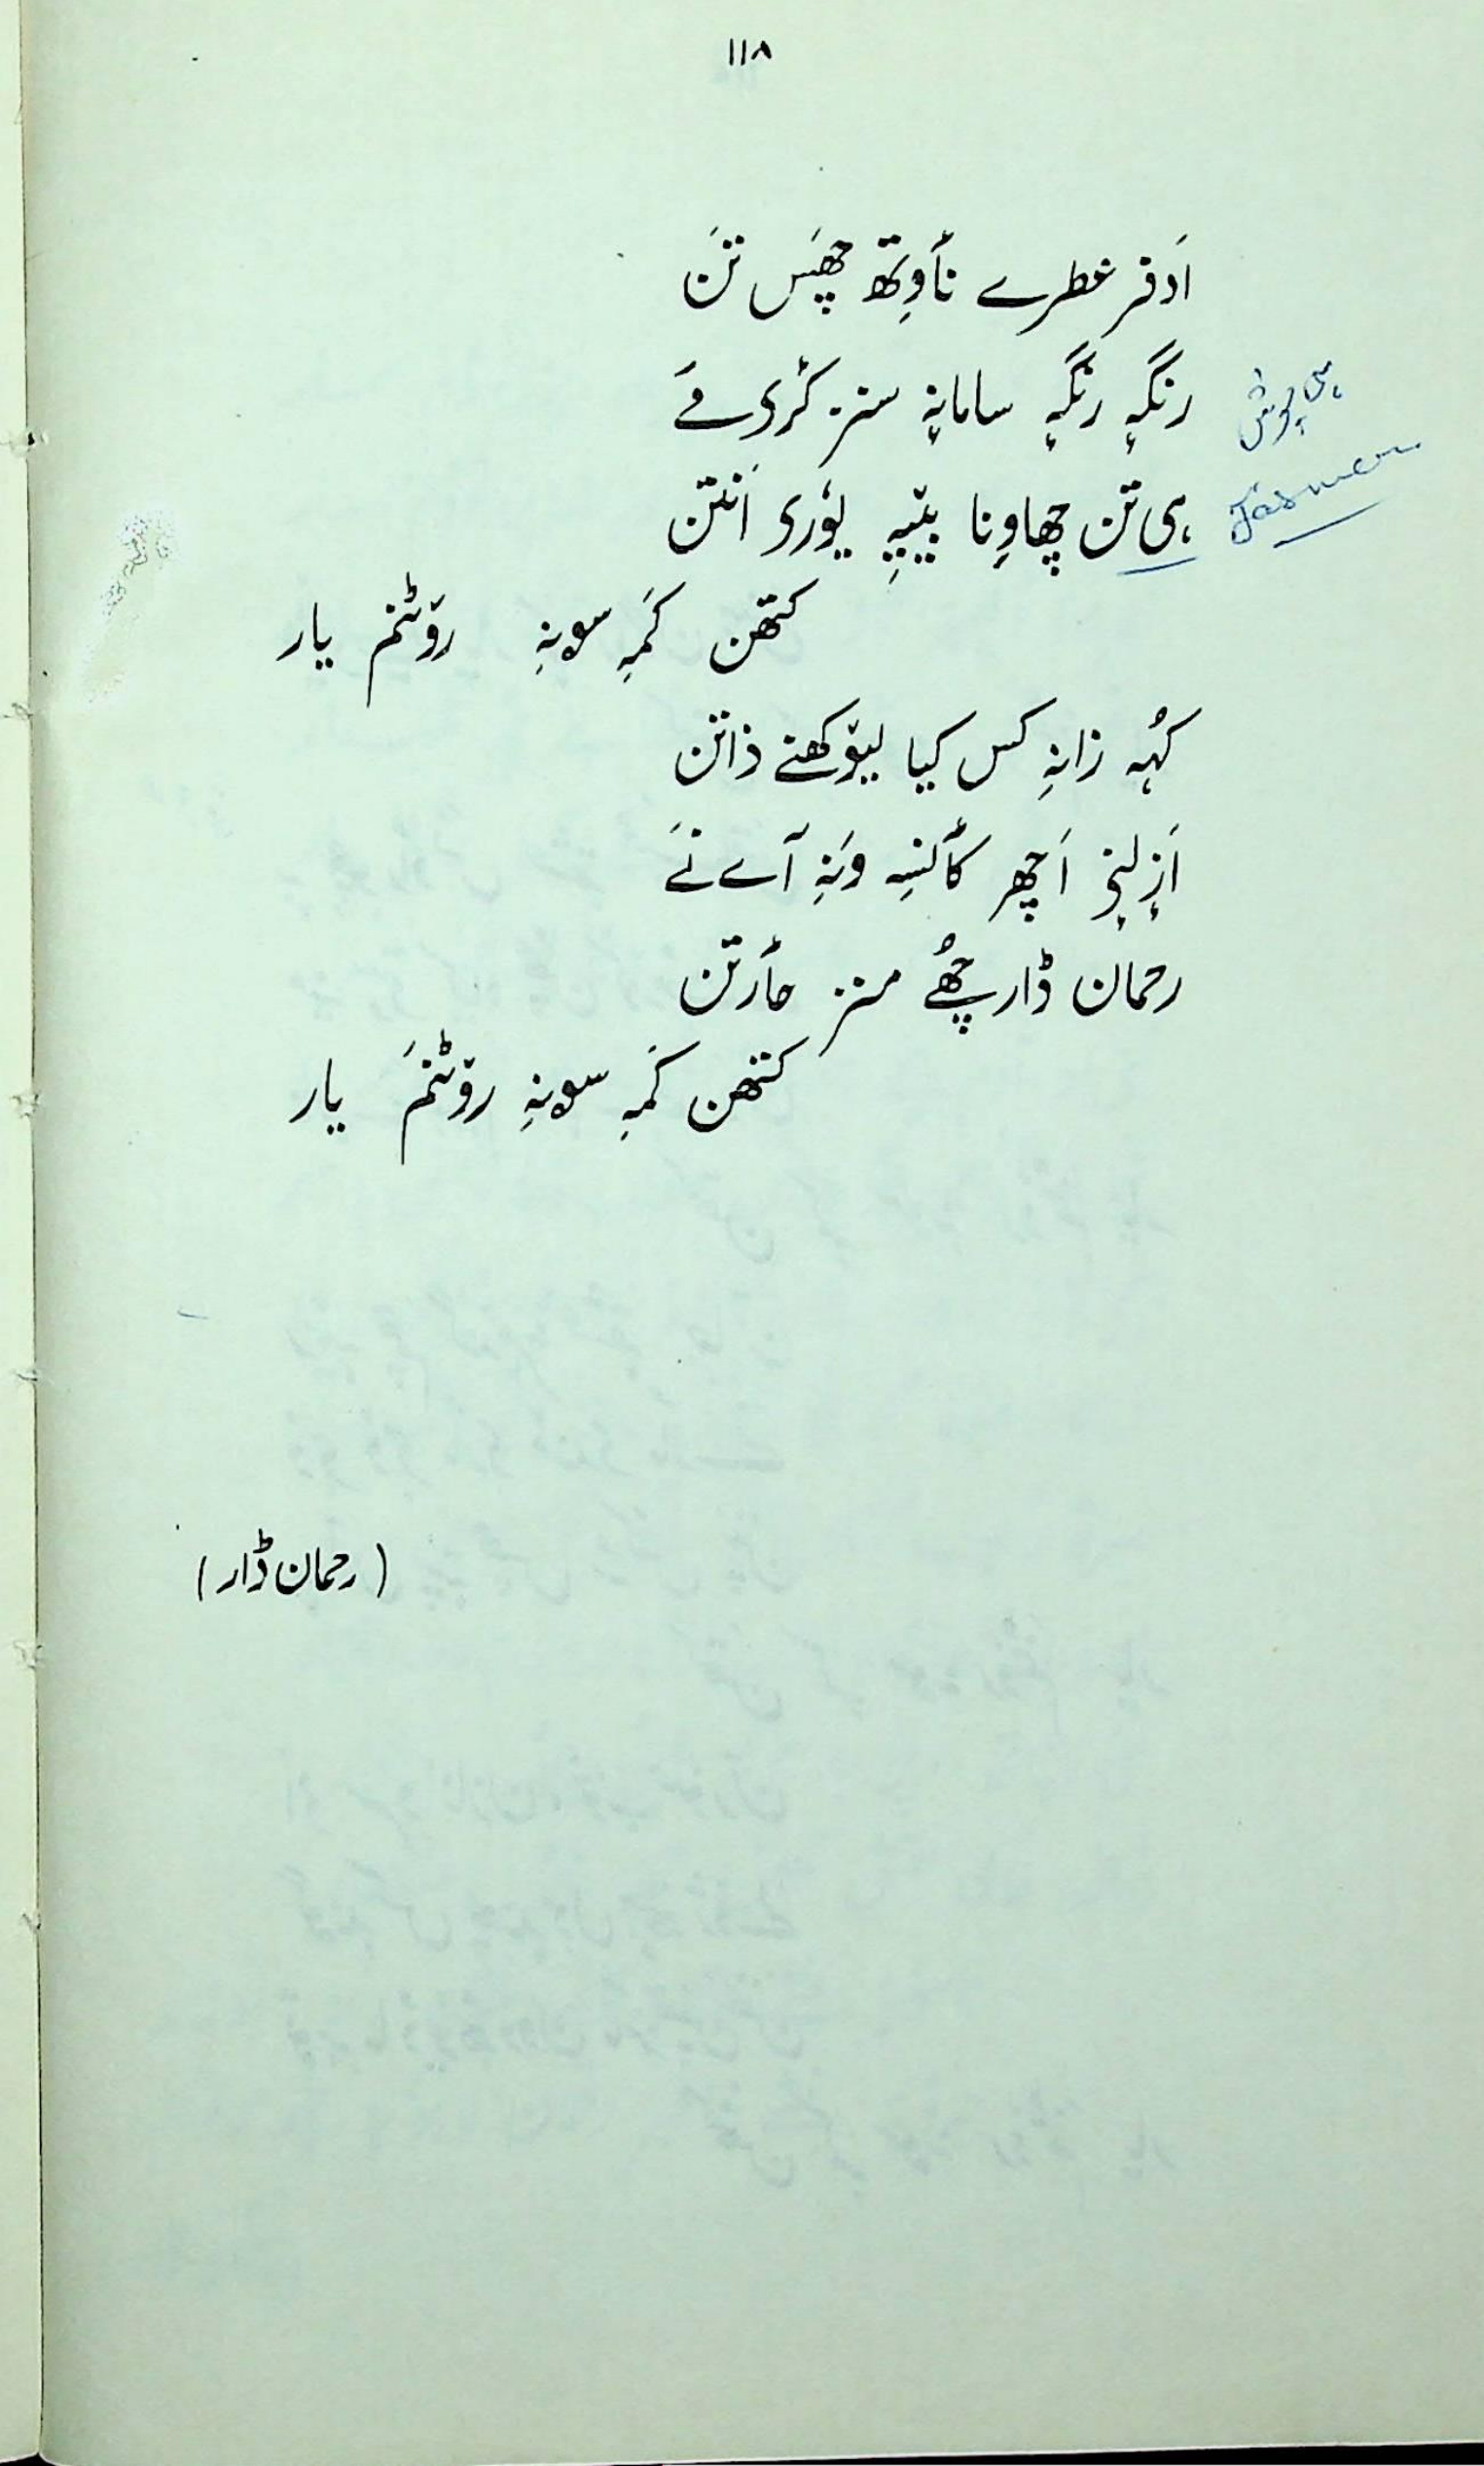 ۱۱۸
اَدفر عطرے نٲوِتھ چھَس تَن
رنگہٕ رنگہٕ سامانہٕ سنز کٔری مَے
ہی تن چھاوِنا بییہِ یوٗری اَنتن
کتھن کَمہِ سونہِ روٚٹنم یار
کُہہ زانہِ کس کیا لیوٚکھنے ذاتن
اَزٕلنہِ اَچھر کٲنسہِ ونہِ آے نَے
رحمان ڈار چھُے منز حٲرتن
کتھن کَمہِ سونہِ روٚٹنمَ یار
(رحمان ڈار)
ہی پوش
Jasmen